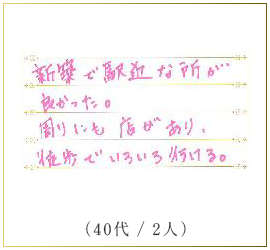 新築で駅近な所が
良かった。
周りにも店があり、
徒歩でいろいろ行ける。
(40代 / 2人)